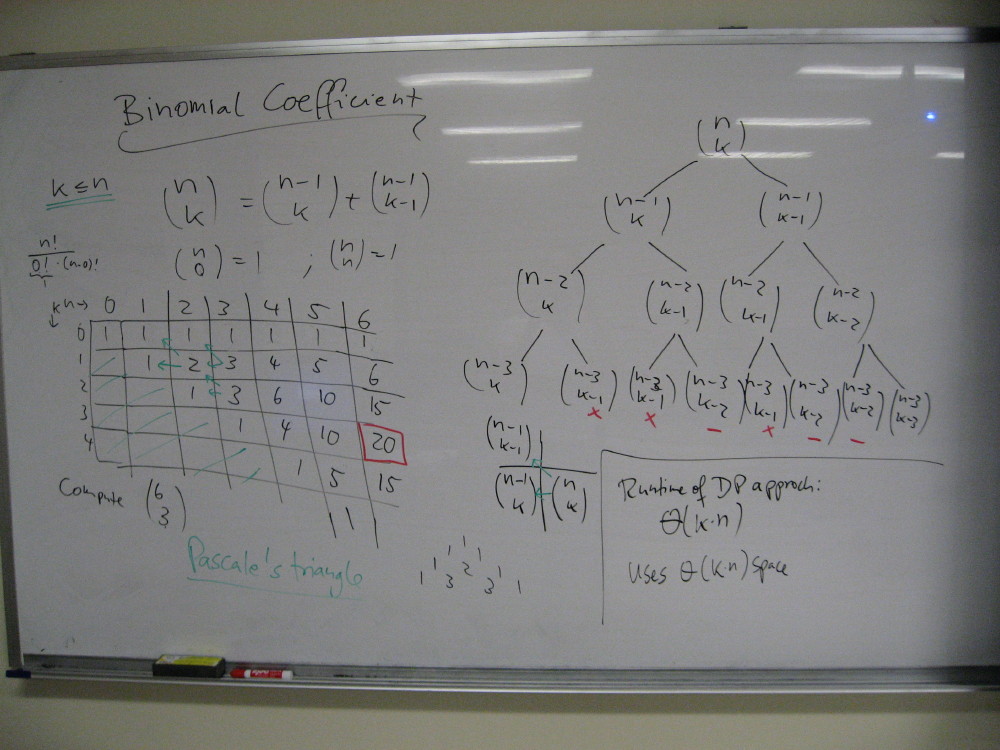 Binomial Coefficient
k ≤ n
(n k) = (n-1 k) + (n-1 k-1)
n! / 0!·(n-0)!
1
(n 0) = 1 ; (n n) = 1
k n→ 0 1 2 3 4 5 6
↓
0 1 1 1 1 1 1 1
1 1 2 3 4 5 6
2 1 3 6 10 15
3 1 4 10 20
4 1 5 15
1 1
Compute (6 3)
Pascale's triangle
1
1 1
1 2 1
1 3 3 1
(n k)
(n-1 k) (n-1 k-1)
(n-2 k) (n-2 k-1) (n-2 k-1) (n-2 k-2)
(n-3 k) (n-3 k-1) (n-3 k-1) (n-3 k-2) (n-3 k-1) (n-3 k-2) (n-3 k-2) (n-3 k-3)
x x - x - -
(n-1 k-1)
(n-1 k) (n k)
Runtime of DP approch:
Θ(k·n)
Uses Θ(k·n) space